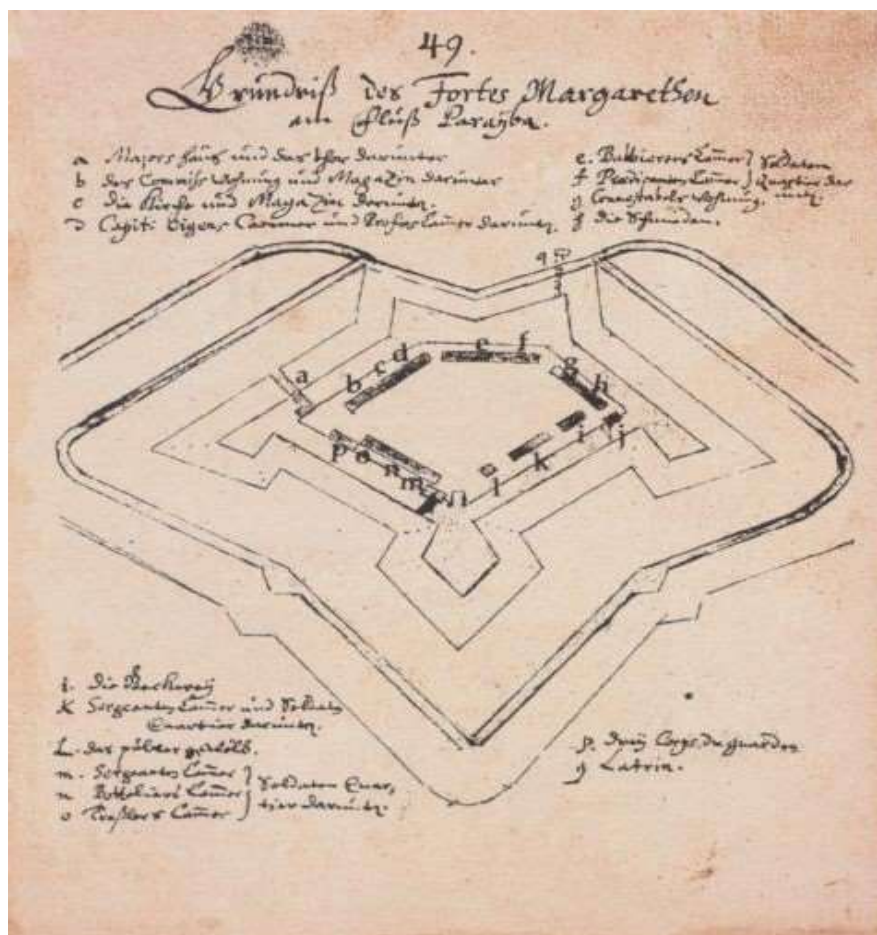 49.
Grundriß des Fortes Margarethen
am Fluß Parayba.
a Majors Haus und das Thor darunter
b des Commiß Wohnung und Magazin darunter
c die Kirche und Magazin darunter.
d Capit: Cammer und Cammer darunter.
e. Barbierers Cammer } Soldaten
f Predicanten Cammer } Quartier
g Constabels Wohnung.
die Schmieden.
a
b
c
d
e
f
g
h
i
j
k
l
m
n
o
p
q
i. die Beckerey
k Sergeanten Cammer und Soldaten
Quartier darunter.
L. das pulver gewölb.
m. Sergeanten Cammer }
n Cammer } Soldaten Quar,
o Cammer } tier darunter.
p. Corps du guarden
q Latrin.